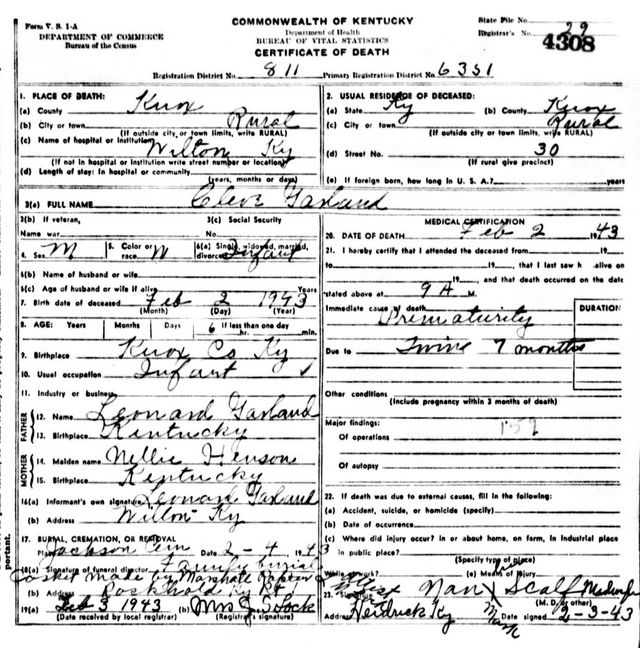 Form V. S. 1-A
DEPARTMENT OF COMMERCE
Bureau of the Census
COMMONWEALTH OF KENTUCKY
Department of Health
BUREAU OF VITAL STATISTICS
CERTIFICATE OF DEATH
State File No.
Registrar's No. 29
4308
Registration District No. 811 Primary Registration District No. 6351
1. PLACE OF DEATH:
(a) County Knox
(b) City or town Rural
(If outside city or town limits, write RURAL)
(c) Name of hospital or institution
Wilton Ky
(If not in hospital or institution write street number or location)
(d) Length of stay: In hospital or community
(years, months or days)
2. USUAL RESIDENCE OF DECEASED:
(a) State Ky (b) County Knox
(c) City or town Rural
(If outside city or town limits, write RURAL)
(d) Street No. 30
(If rural give precinct)
(e) If foreign born, how long in U. S. A.? years
3(a) FULL NAME Cleve Garland
3(b) If veteran, 3(c) Social Security
Name war No.
4. Sex M 5. Color or race W 6(a) Single, widowed, married, divorced Infant
6(b) Name of husband or wife
6(c) Age of husband or wife if alive Years
7. Birth date of deceased Feb 2 1943
(Month) (Day) (Year)
8. AGE: Years Months Days If less than one day
6 hr. min.
9. Birthplace Knox Co Ky
10. Usual occupation Infant
11. Industry or business
FATHER
12. Name Leonard Garland
13. Birthplace Kentucky
MOTHER
14. Maiden name Nellie Henson
15. Birthplace Kentucky
16(a) Informant's own signature Leonard Garland
(b) Address Wilton Ky
17. BURIAL, CREMATION, OR REMOVAL
Place Jackson Cem Date 2-4, 1943
18(a) Signature of funeral director Family burial
Casket made by Marshall
(b) Address Rockhold Ky Rt
19(a) Feb 3 1943 (b) Mrs J. S. Lock
(Date received by local registrar) (Registrar's signature)
MEDICAL CERTIFICATION
20. DATE OF DEATH Feb 2 1943
21. I hereby certify that I attended the deceased from 19
to 19 , that I last saw h alive on
19 and that death occurred on the date
stated above at 9 A M.
Immediate cause of death
DURATION
Prematurity
Due to Twins 7 months
Other conditions
(Include pregnancy within 3 months of death)
Major findings: 159
Of operations
Of autopsy
22. If death was due to external causes, fill in the following:
(a) Accident, suicide, or homicide (specify)
(b) Date of occurrence
(c) Where did injury occur? In or about home, on farm, in industrial place
in public place?
(Specify type of place)
While at work? (e) Means of injury
23. Signature Nan Scalf Midwife
(M. D. or other)
Address Heidrick Ky Date signed 2-3-43
portant.